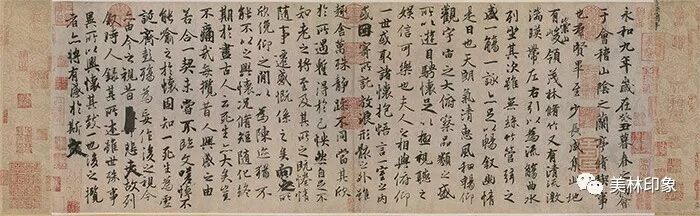 永和九年歲在癸丑暮春之初會
于會稽山陰之蘭亭脩稧事
也羣賢畢至少長咸集此地
有崇山峻領茂林脩竹又有清流激
湍暎帶左右引以為流觴曲水
列坐其次雖無絲竹管弦之
盛一觴一詠亦足以暢敘幽情
是日也天朗氣清惠風和暢仰
觀宇宙之大俯察品類之盛
所以遊目騁懷足以極視聽之
娛信可樂也夫人之相與俯仰
一世或取諸懷抱悟言一室之內
或因寄所託放浪形骸之外雖
趣舍萬殊靜躁不同當其欣
於所遇蹔得於己快然自足不
知老之將至及其所之既惓情
隨事遷感慨係之矣向之所
欣俛仰之間以為陳迹猶不
能不以之興懷況脩短隨化終
期於盡古人云死生亦大矣豈
不痛哉每攬昔人興感之由
若合一契未嘗不臨文嗟悼不
能喻之於懷固知一死生為虛
誕齊彭殤為妄作後之視今
亦由今之視昔悲夫故列
敘時人錄其所述雖世殊事
異所以興懷其致一也後之攬
者亦將有感於斯文
美林印象